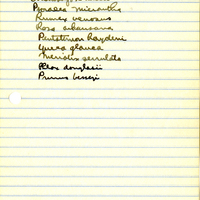 Psoralea micrantha
Rumex venosus
Rosa arkansana
Pentstemon Haydeni
Yucca glauca
Meriolix serrulata
Phlox douglasii
Prunus besseyi